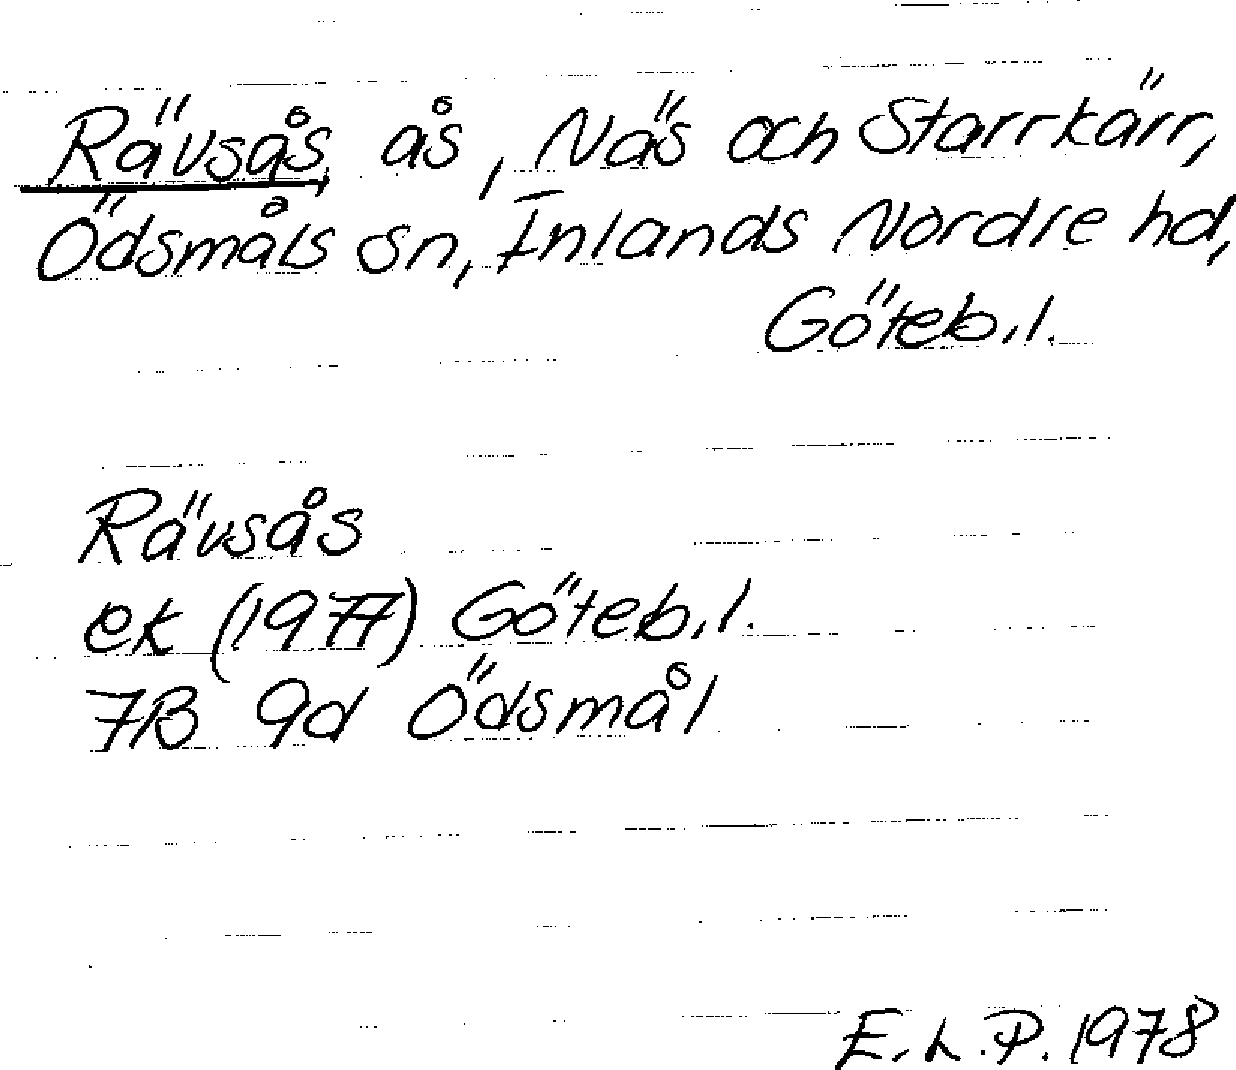 Rävsås, ås, Näs och Starrkärr,
Ödsmåls sn, Inlands Nordre hd,
Göteb.l.
Rävsås
ek (1977) Göteb.l.
7B 9d Ödsmål
E.L.P. 1978